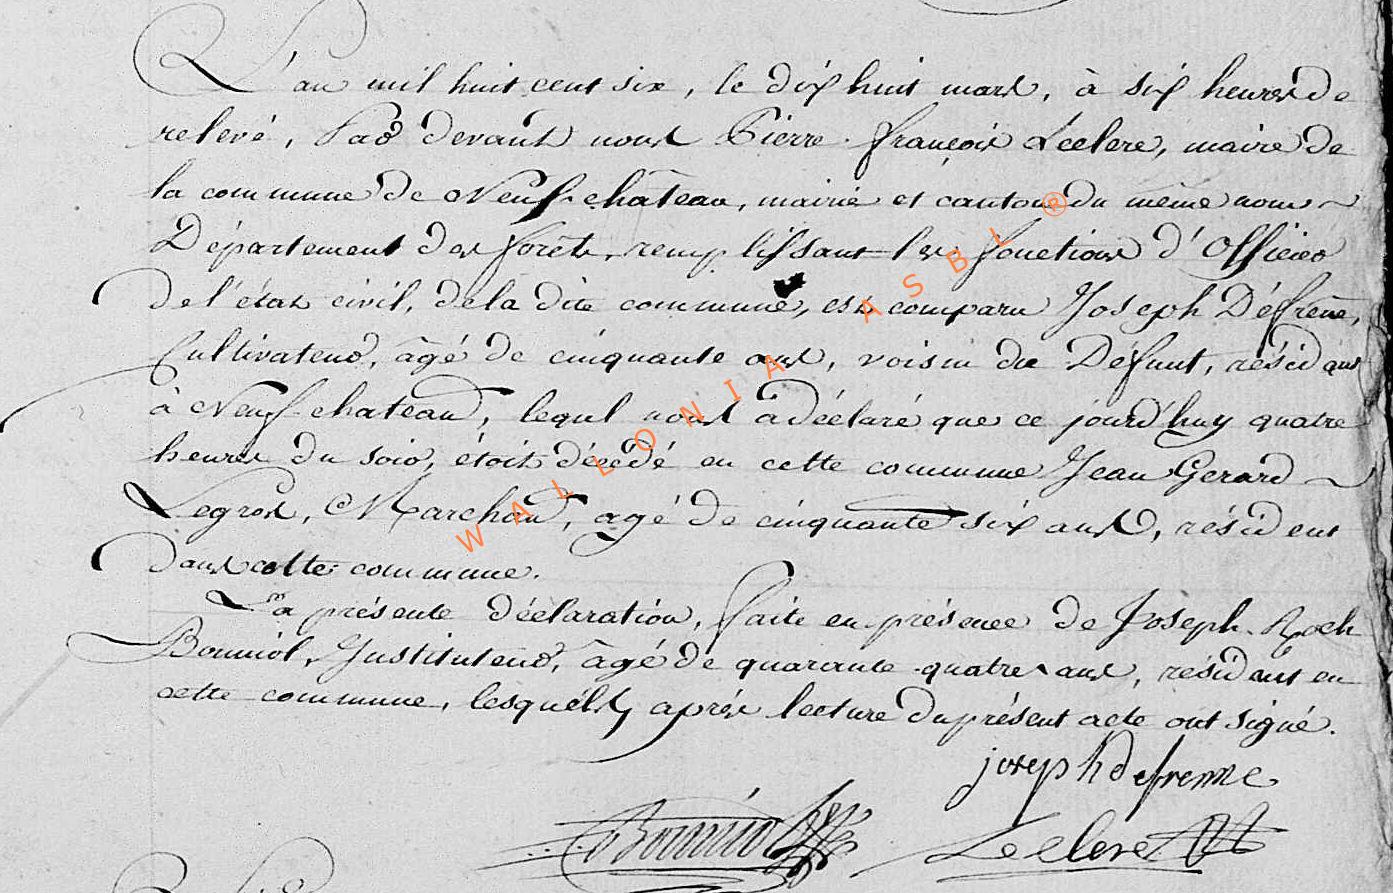 L'an mil huit cent six, le dix huit mars, à six heures de
relevé, Par devant nous Pierre françois Leclerc, maire de
la commune de Neufchâteau, mairie et canton du même nom
Département des forêts, remplissant les fonctions d'Officier
de l'état civil, de la dite commune, est comparu Joseph Défrêne,
Cultivateur, âgé de cinquante ans, voisin du Défunt, résidant
à Neufchateau, lequel nous à déclaré que ce jourd'huy quatre
heures du soir, étoit décédé en cette commune Jean Gerard
Legros, Marchand, agé de cinquante six ans, résident
dans cette commune.
La présente déclaration, faite en présence de Joseph Roch
Bonniol, Instituteur, âgé de quarante quatre ans, résidant en
cette commune, lesquels, après lecture du présent acte ont signé.
joseph defrenne
Bonniol
Leclerc
WALLONIA ASBL ®